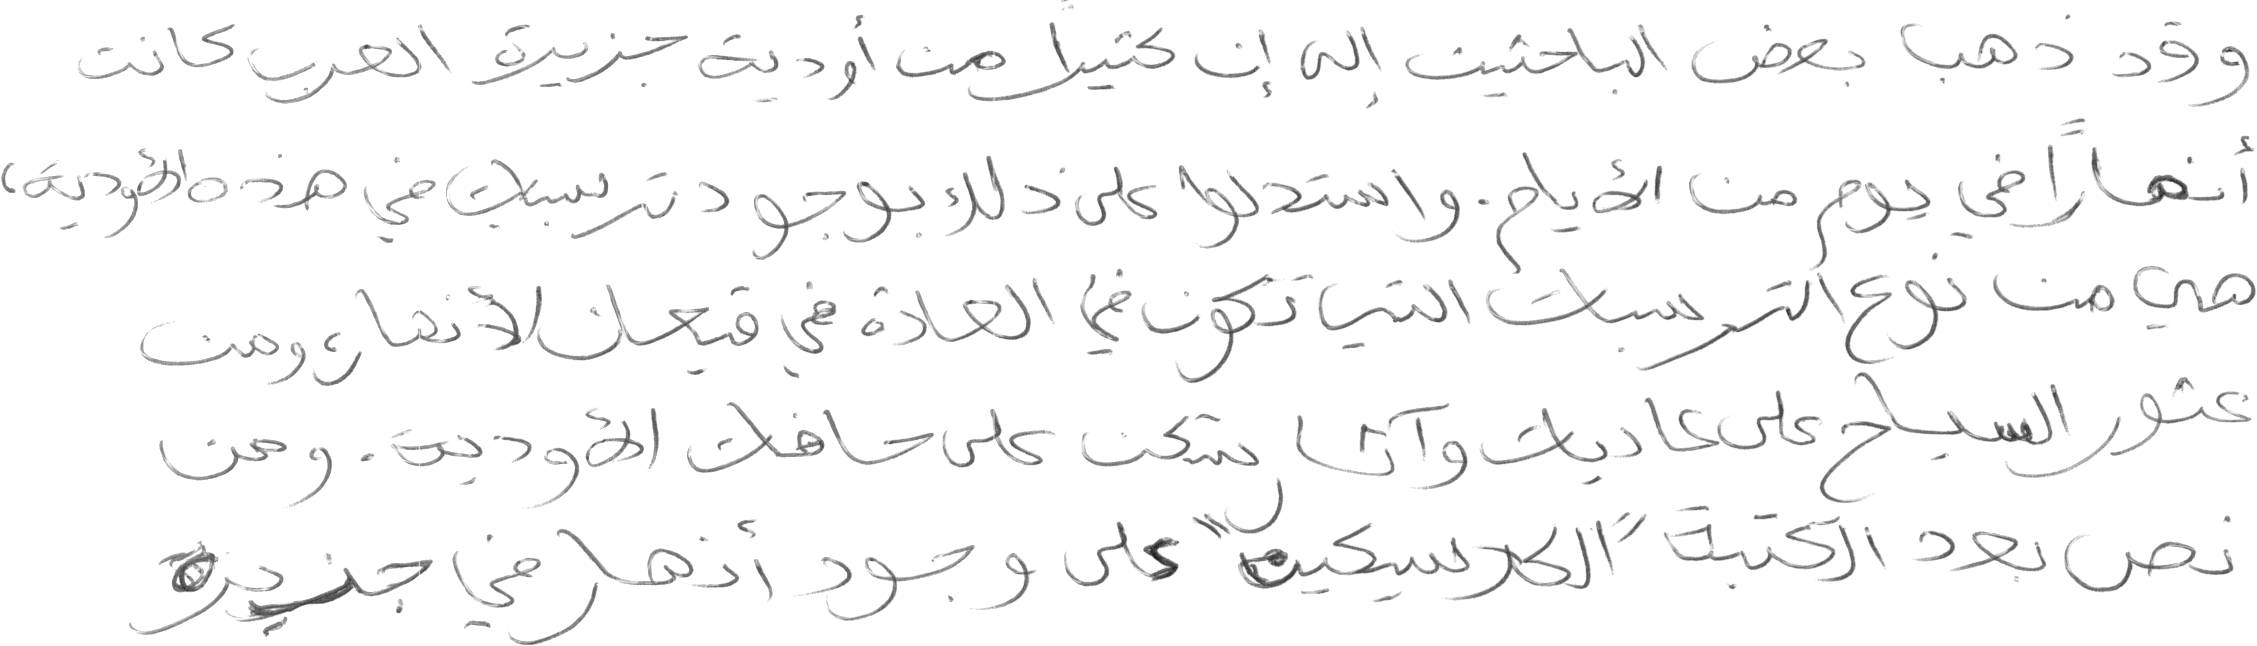 وقد ذهب بعض الباحثين إلى إن كثيراً من أودية جزيرة العرب كانت
أنهاراً في يوم من الأيام. واستدلوا على ذلك بوجود ترسبات في هذه الأودية،
هي من نوع الترسبات التي تكون في العادة في قيعان الأنهار، ومن
عثور السياح على عاديات وآثار سكن على حافات الأودية. ومن
نص بعد الكتبة "الكلاسيكين" على وجود أنهار في جزيرة